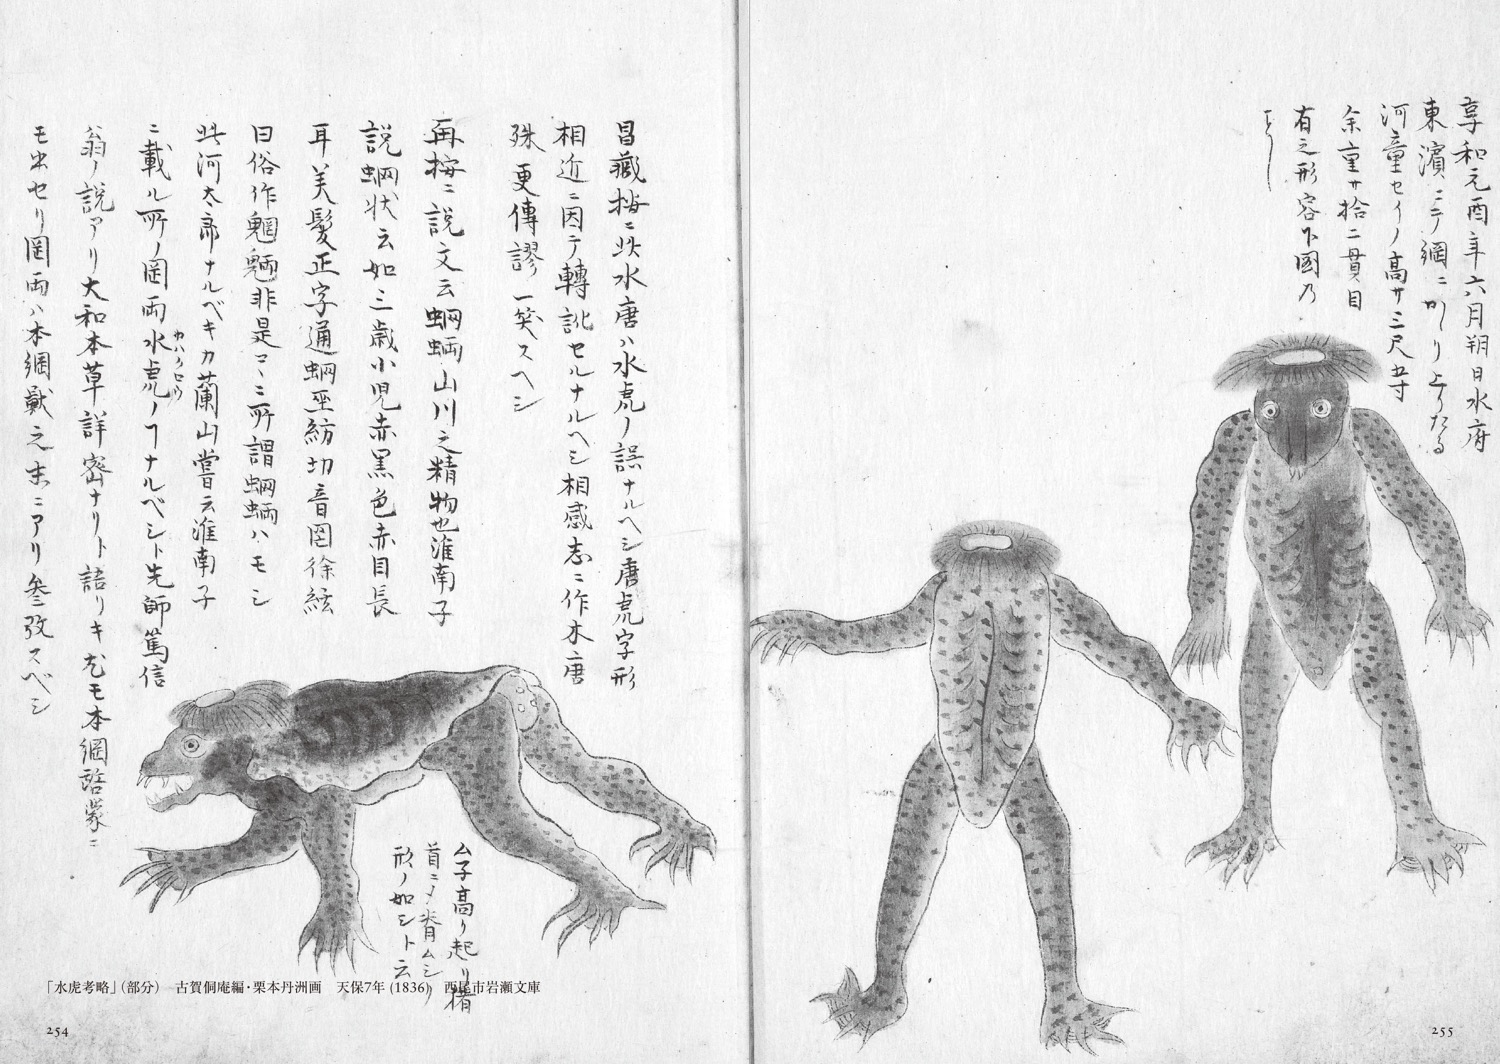 享和元酉年六月朔日水府
東濱ニテ網ニかゝり上りたる
河童セイノ高サ三尺五寸
余重サ拾二貫目
有之形容下圖乃
ことし
昌臧按ニ此水唐ハ水虎ノ誤ナルヘシ唐虎字形
相近ニ因テ轉訛セルナルヘシ相感志ニ作木唐
殊更傳謬一笑スヘシ
再按ニ説文云蝄蜽山川之精物也淮南子
説蝄状云如三歳小児赤黒色赤目長
耳美髪正字通蝄巫紡切音罔徐鉉
曰俗作魍魎非是コヽニ所謂蝄蜽ハモシ
此河太郎ナルベキカ蘭山嘗云淮南子
ニ載ル所ノ罔両水虎ノコナルベシト先師篤信
カハタロウ
翁ノ説アリ大和本草詳密ナリト語リキ尤モ本綱啓蒙ニ
モ出セリ罔両ハ本綱獣之末ニアリ参攷スベシ
ム子高り起り猪
首ニメ脊ムシノ
形ノ如シト云
「水虎考略」（部分）　古賀侗庵編・栗本丹洲画　天保7年 (1836)　西尾市岩瀬文庫
254
255